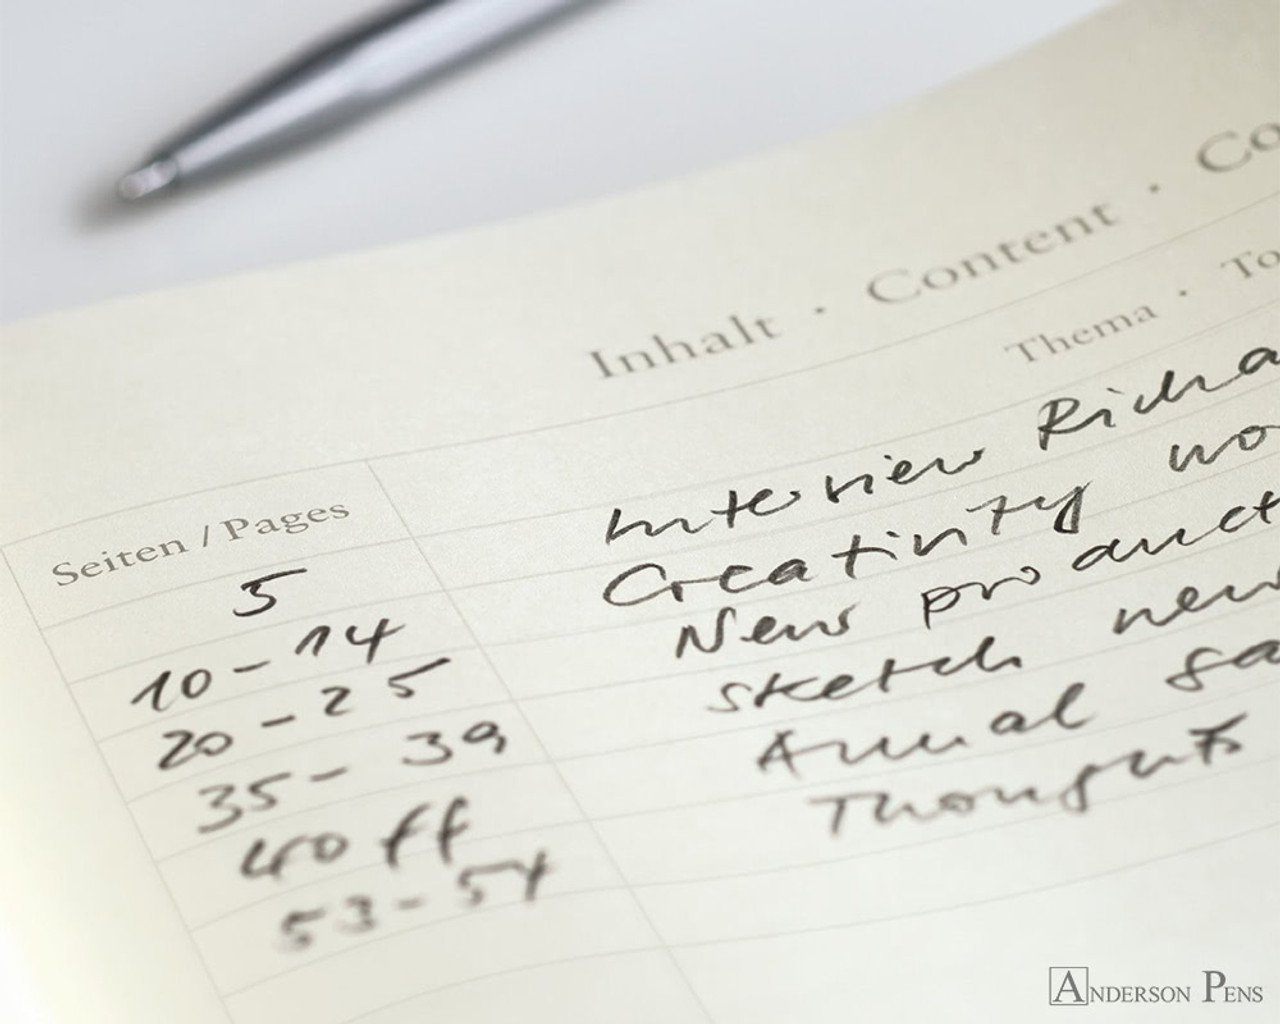 Inhalt · Content · Co
Seiten / Pages Thema · To
5 Interview Richa
10 - 14 Creativity wo
20 - 25 New product
35 - 39 Sketch new
40 ff Annual sa
53 - 54 Thoughts
ANDERSON PENS